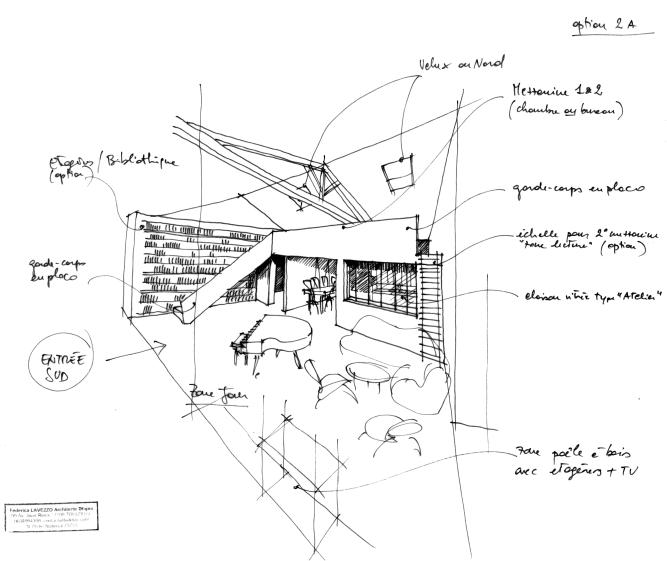 option 2A
Velux au Nord
Mezzanine 1&2
(chambre ou bureau)
etagères / Bibliothèque
(option)
garde-corps en placo
échelle pour 2° mezzanine
"zone lecture" (option)
garde-corps
en placo
cloison vitrée type "Atelier"
ENTRÉE
SUD
Zone Jour
zone poêle à bois
avec etagères + TV
Federica LAVEZZO Architecte